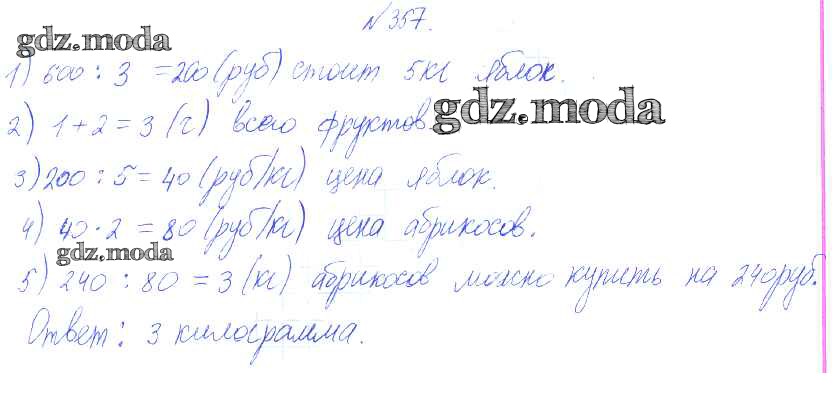 №357.
gdz.moda
1) 600 : 3 = 200 (руб) стоит 5кг яблок.
2) 1 + 2 = 3 (ч) всего фруктов.
gdz.moda
3) 200 : 5 = 40 (руб/кг) цена яблок.
4) 40 · 2 = 80 (руб/кг) цена абрикосов.
gdz.moda
5) 240 : 80 = 3 (кг) абрикосов можно купить на 240руб.
Ответ: 3 килограмма.